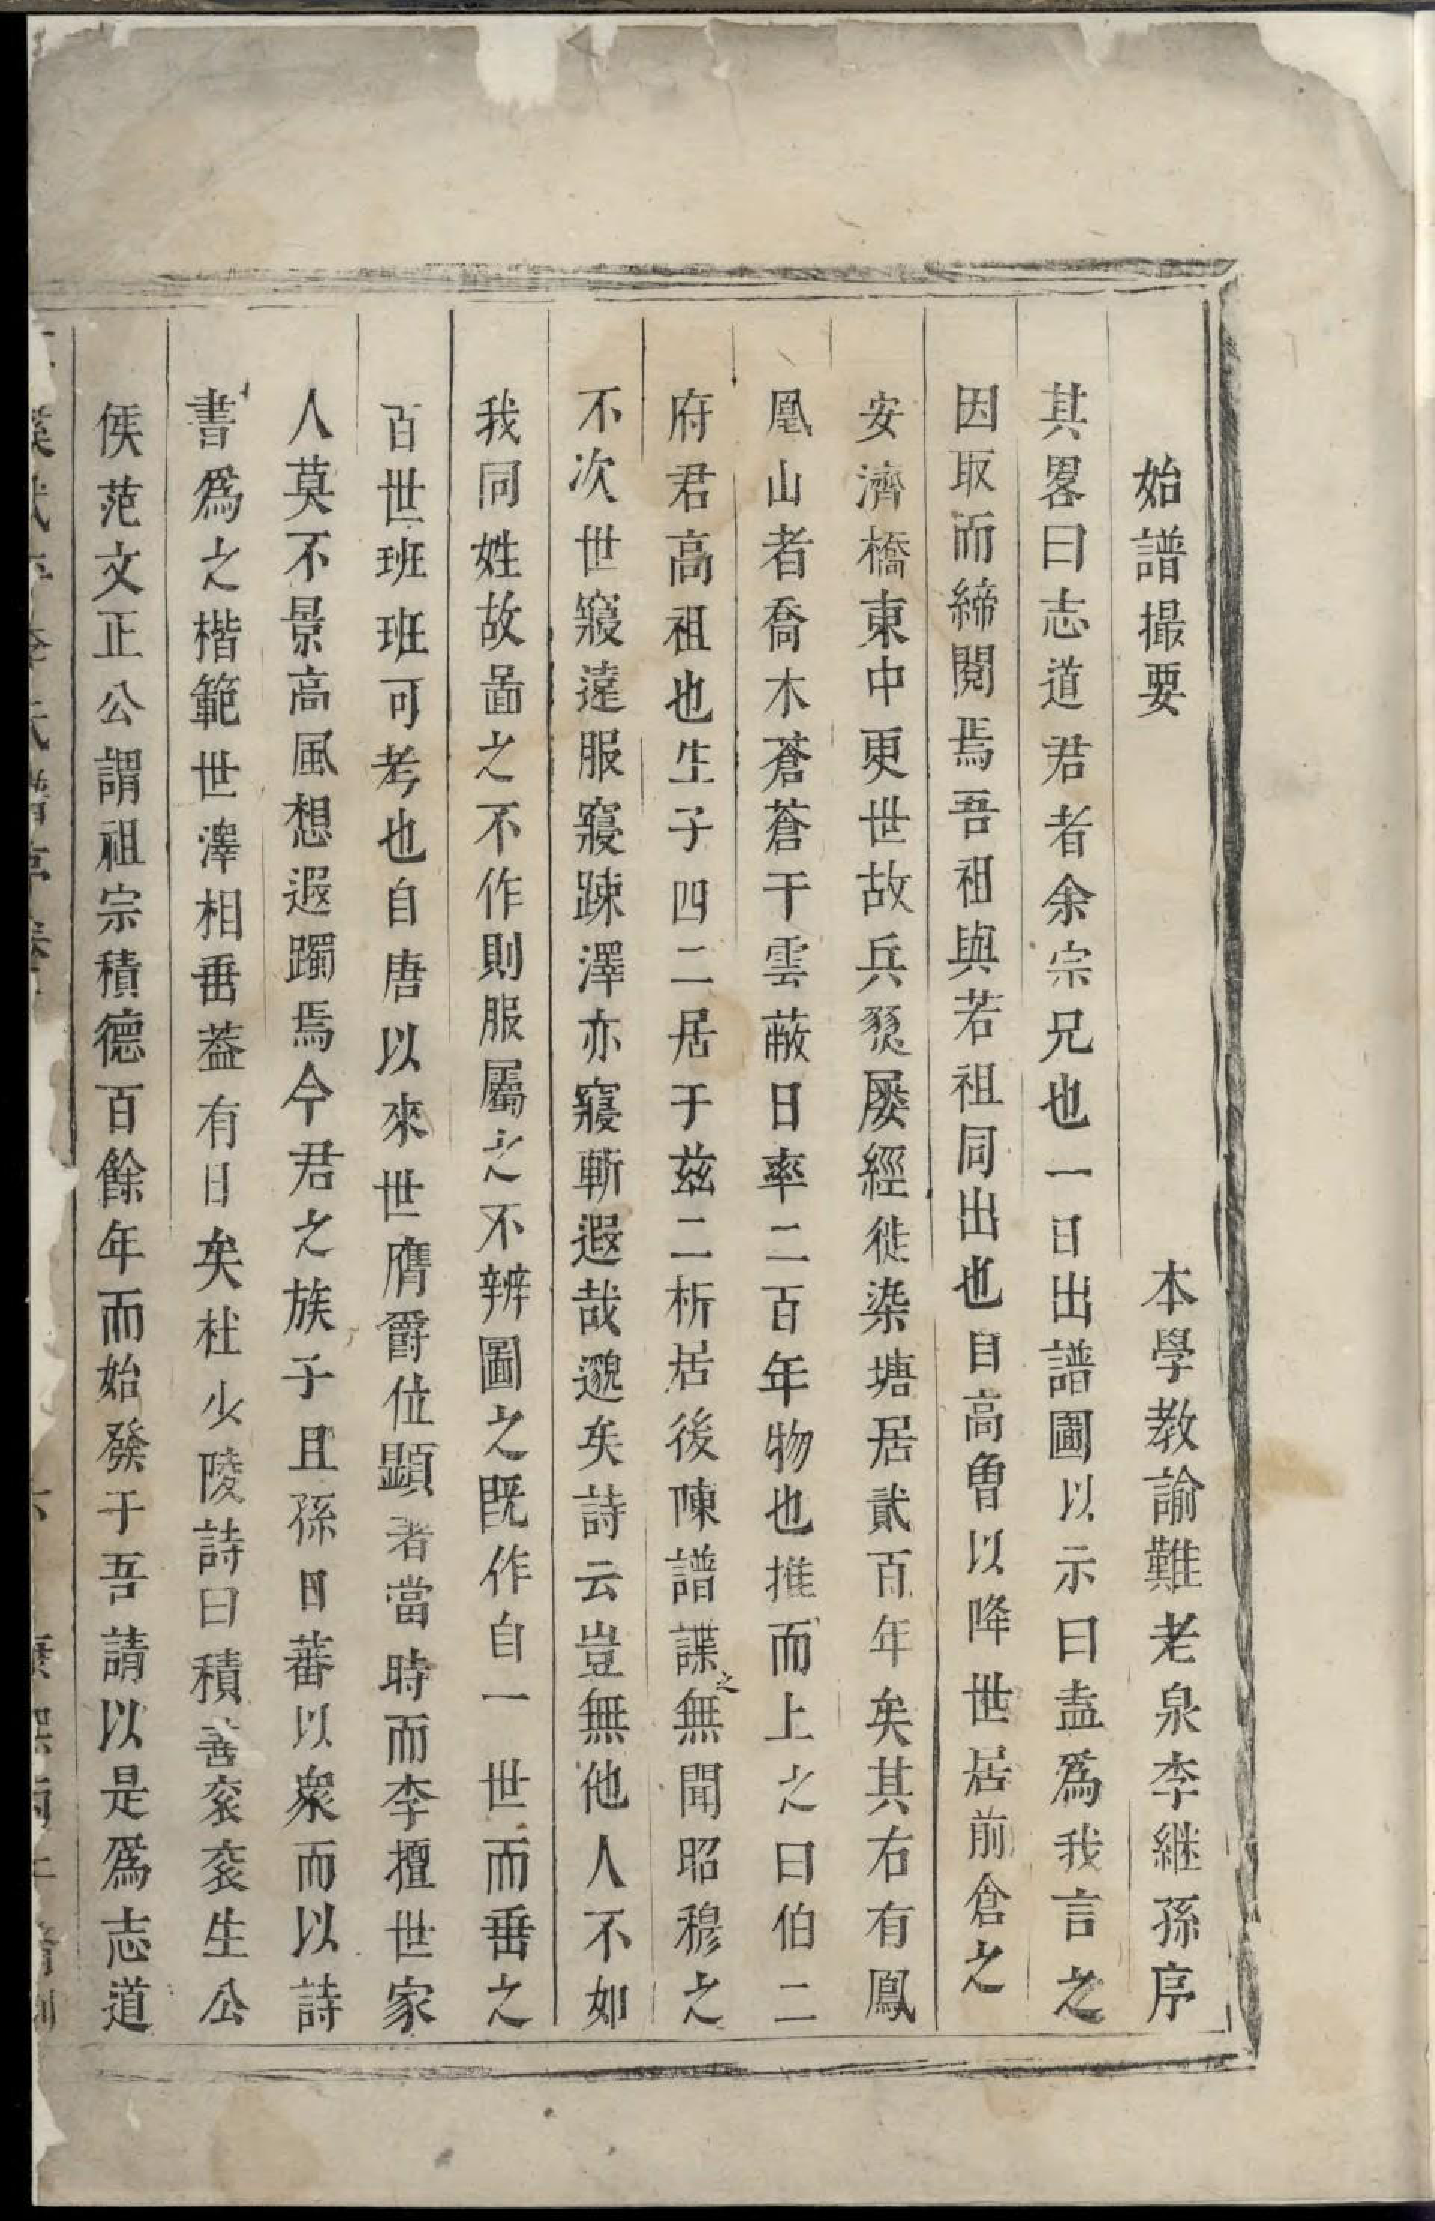 始譜撮要　本學教諭難老泉李継孫序
其畧曰志道君者余宗兄也一日出譜圖以示曰盍爲我言之
因取而締閱焉吾祖與若祖同出也自高曾以降世居前倉之
安濟橋東中更世故兵燹屡經徙染塘居貳百年矣其右有鳳
凰山者喬木蒼蒼干雲蔽日率二百年物也推而上之曰伯二
府君高祖也生子四二居于兹二析居後陳譜諜之無聞昭穆之
不次世寖遠服寖踈澤亦寖斬遐哉邈矣詩云豈無他人不如
我同姓故啚之不作則服屬之不辨圖之既作自一世而垂之
百世班班可考也自唐以來世膺爵位顯著當時而李擅世家
人莫不景高風想遐躅焉今君之族子且孫日蕃以衆而以詩
書爲之楷範世澤相垂葢有日矣杜少陵詩曰積善衮衮生公
侯范文正公謂祖宗積德百餘年而始發于吾請以是爲志道